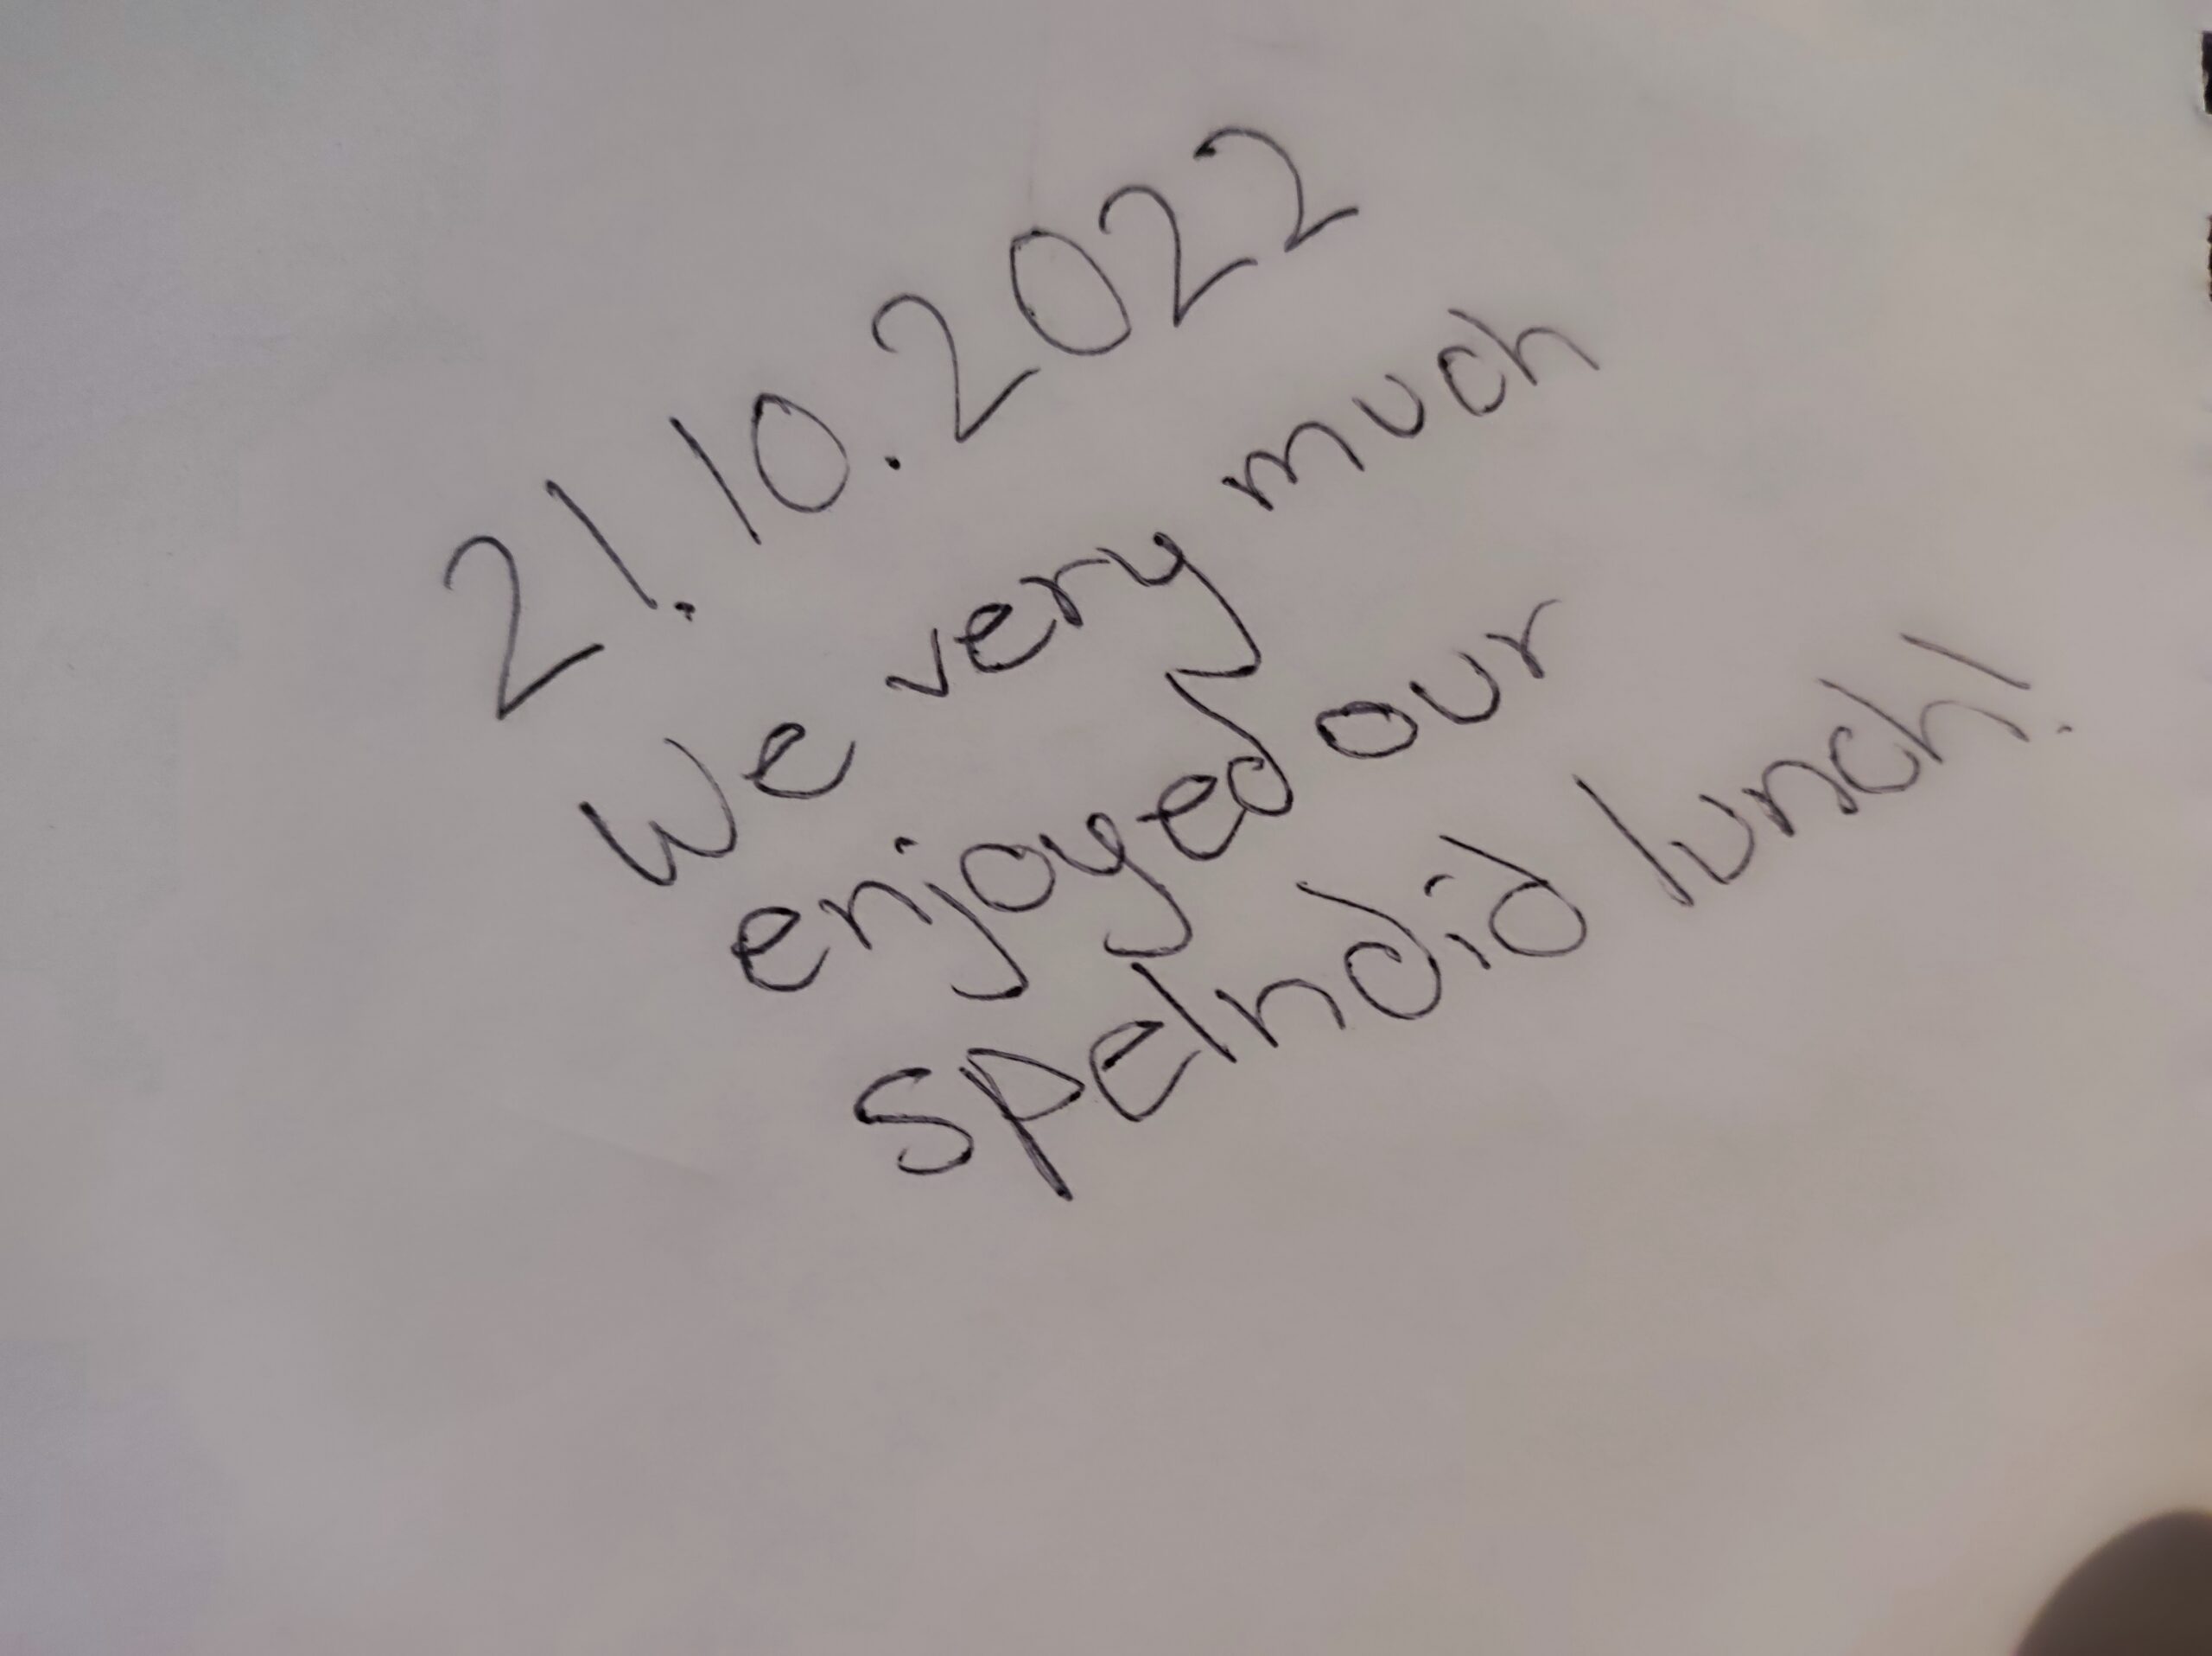 21.10.2022
We very much
enjoyed our
spelndid lunch!